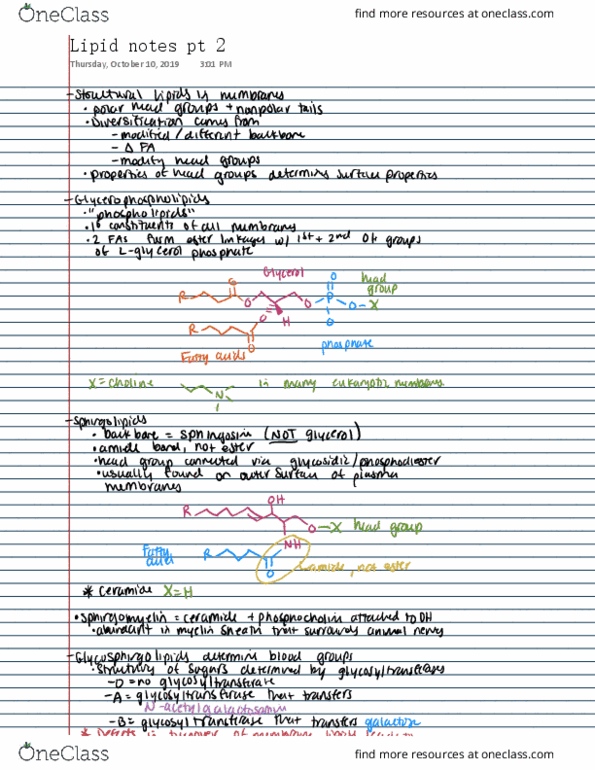 OneClass
find more resources at oneclass.com
Lipid notes pt 2
Thursday, October 10, 2019 3:01 PM
- Structural lipids in membranes
• polar head groups + nonpolar tails
• Diversification comes from
- modified / different backbone
- Δ FA
- modify head groups
• properties of head groups determine surface properties
- Glycerophospholipids
• "phospholipids"
• 1° constituents of cell membranes
• 2 FAs form ester linkages w/ 1st + 2nd OH groups
of L-glycerol phosphate
Glycerol
head
group
R
O
O
O
P
O
O
O-X
R
O
O
H
phosphate
Fatty acids
X = choline
N
in many eukaryotic membranes
- Sphingolipids
• backbone = sphingosine (NOT glycerol)
• amide bond, not ester
• head group connected via glycosidic/phosphodiester
• usually found on outer surface of plasma
membranes
OH
R
O-X head group
NH
Fatty
acids
R
O
amide, not ester
* Ceramide X=H
• Sphingomyelin = ceramide + phosphocholine attached to OH
• abundant in myelin sheath that surrounds animal nerves
- Glycosphingolipids determine blood groups
• Structure of sugars determined by glycosyltransferases
- O = no glycosyltransferase
- A = glycosyltransferase that transfers
N-acetylgalactosamine
- B = glycosyltransferase that transfers galactose
* Defects in turnover of membrane lipids
OneClass
find more resources at oneclass.com